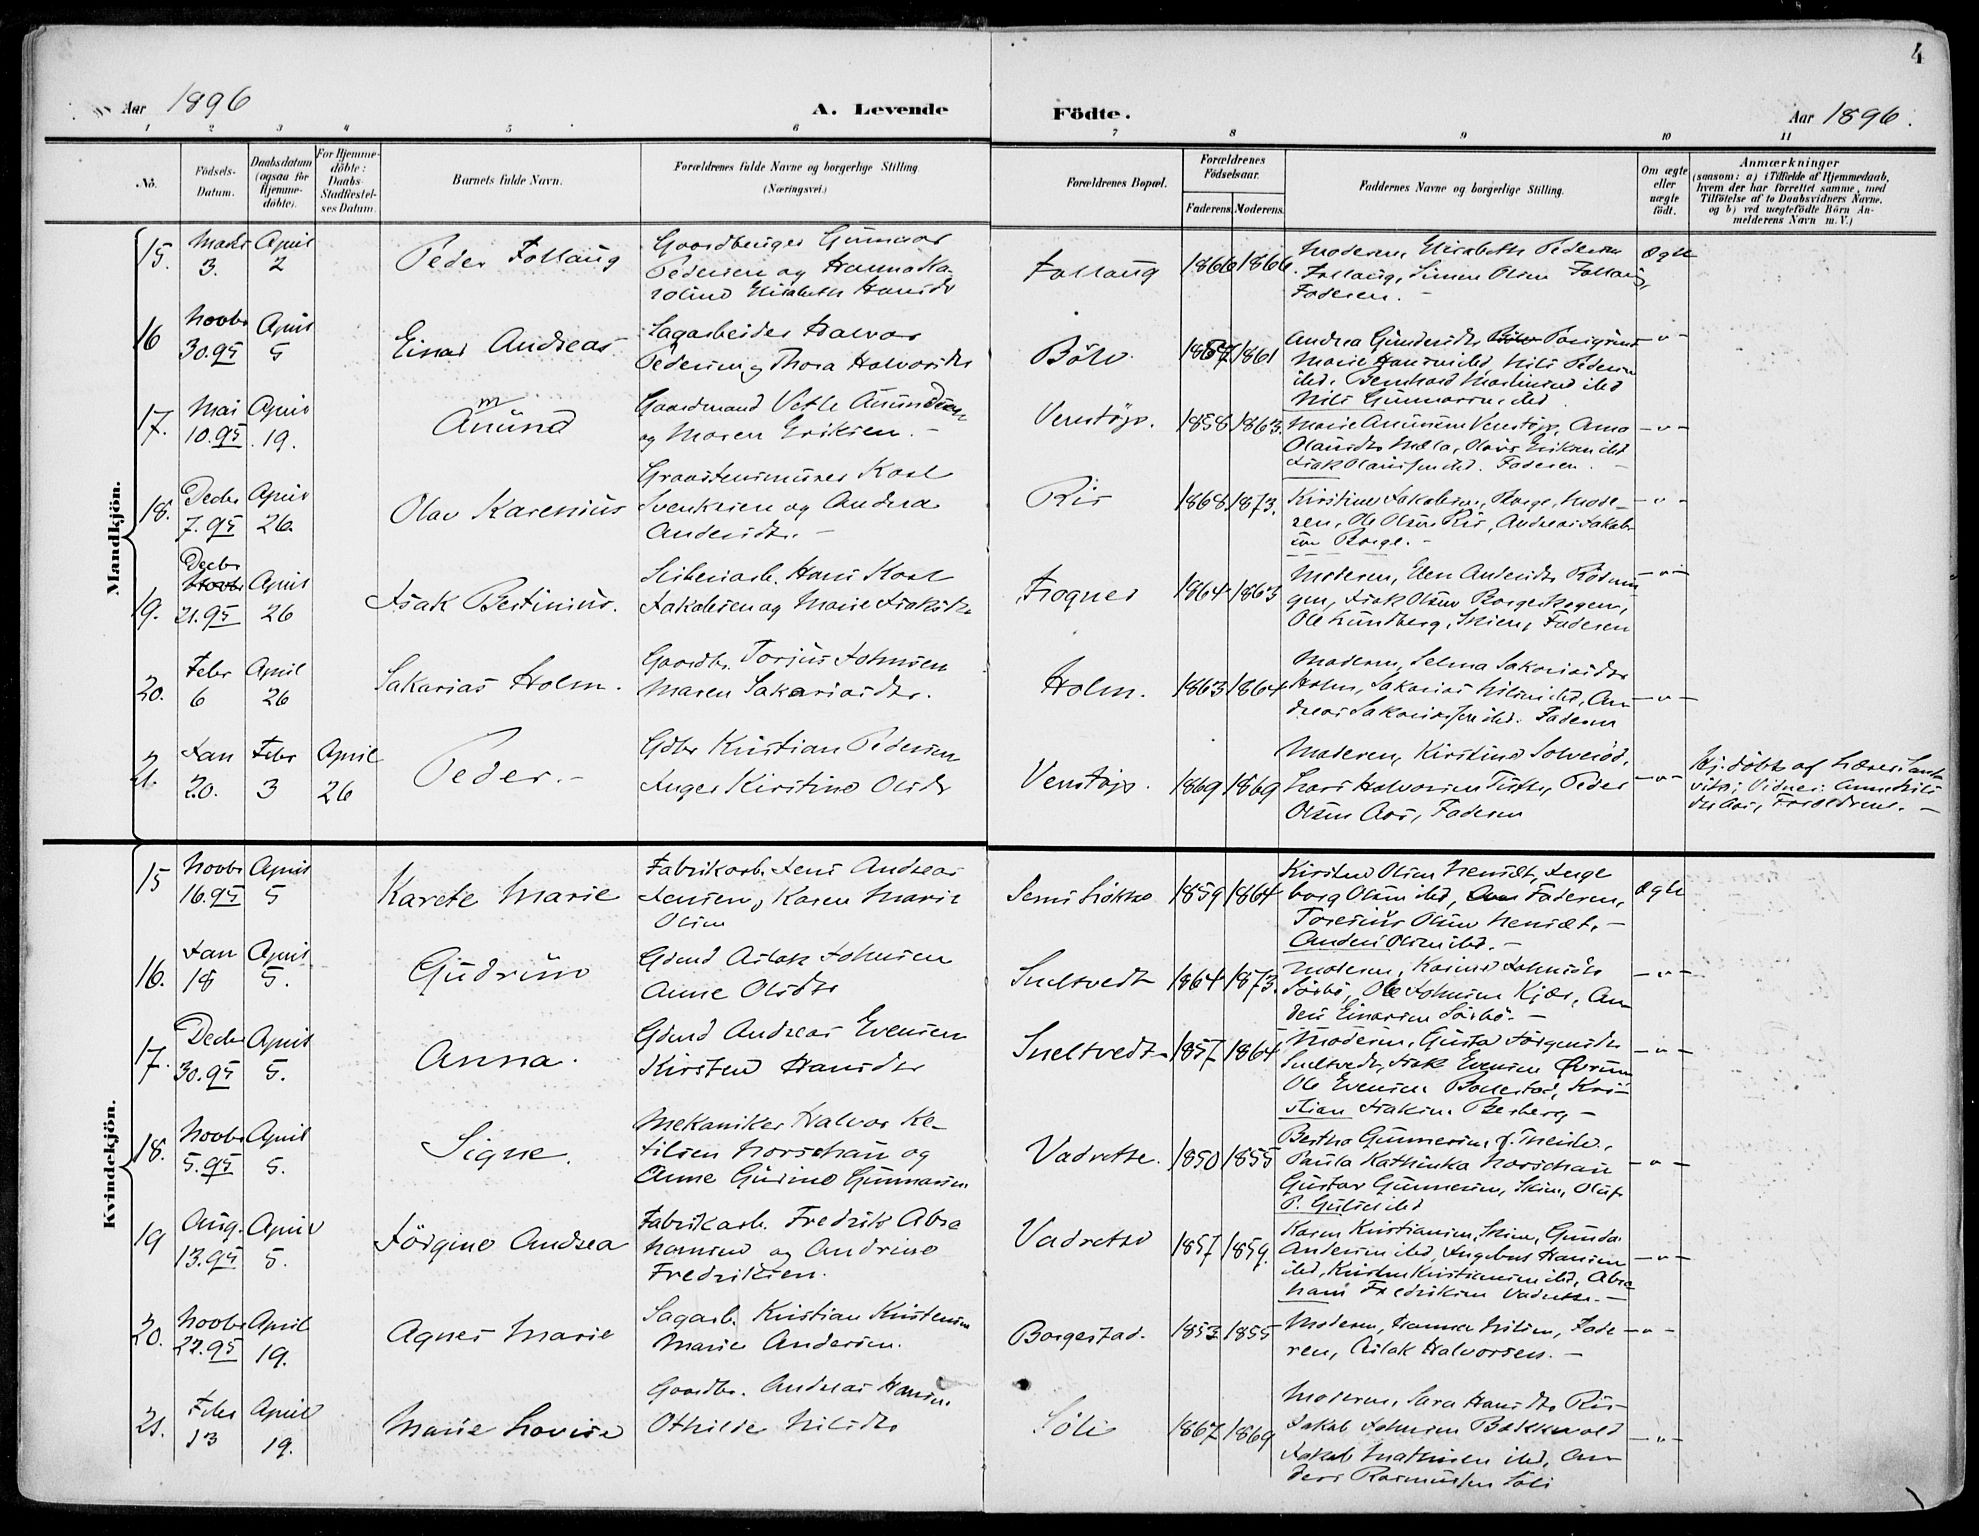 4
Aar 1896
A. Levende Födte.
Aar 1896.
1 2 3 4 5 6 7 8 9 10 11
No.
Födsels-
Datum.
Daabsdatum
(ogsaa for
Hjemme-
döbte).
For Hjemme-
döbte:
Daabs-
Stadfæstel-
ses Datum.
Barnets fulde Navn.
Forældrenes fulde Navne og borgerlige Stilling
(Næringsvei.)
Forældrenes Bopæl.
Forældrenes
Födselsaar.
Faderens. Moderens.
Faddernes Navne og borgerlige Stilling.
Om ægte
eller
uægte
födt.
Anmærkninger
(saasom: a) i Tilfælde af Hjemmedaab,
hvem der har forrettet samme, med
Tilföielse af to Daabsvidners Navne.
og b) ved uægtefödte Börn An-
melderens Navn m. V.)
Mandkjön.
15.
3.
April
2
Peder Follaug
Gaardbruger Gunnar
Pedersen og Hanna Ka
roline Elisabeth Hansdr
Follaug
1866 1866.
Moderen, Elisabeth Pedersen
Follaug, Simen Olsen Follaug,
Faderen. -
Ægte
16
Novbr
30.95
April
5
Einar Andreas
Sagarbeider Halvor
Pedersen og Thora Halvorsdr
Böle
1857 1861
Marie Hansen ibd, Nils Pedersen
ibd. Bernhard Martinsen ibd
Nils Gunnarsen ibd
-"-
17.
Mai
10.95.
April
19.
Anund
Gaardmand Vetle Anundsen
og Maren Eriksen. -
Venstöp.
1858 1863.
Marie Anunsen Venstöp, Anna
Olavsdr Mæla, Olavs Eriksen ibd
Isak Olausen ibd. Faderen. -
-"-
18.
Decbr
7.95
April
26.
Olav Karenius
Graastensmurer Karl
Svenksen og Andrea
Andersdtr. -
Ris
1868. 1873.
Kirstine Jakobsen, Borge, Mode-
ren, Ole Olsen Ris, Andreas Jakob
sen Borge. -
-"-
19.
Decbr
Novbr
21.95
April
26
Isak Bertinius.
Sliberiarb. Hans Karl
Jakobsen og Marie Isaksdr
Frogner
1864 1863
Moderen, Elen Andersdtr Rödmyr
gen, Isak Olsen Borgeskogen,
Ole Lundberg, Skien, Faderen
-"-
20.
Febr
6
April
26
Sakarias Holm.
Gaardbr. Torjus Johnsen
Maren Sakariasdtr.
Holm.
1863 1864
Moderen, Selma Sakariasdtr
Holm, Sakarias Nilsen ibd, An
dreas Sakariassen ibd. Faderen
-"-
21.
Jan
20.
Febr
3
April
26
Peder. -
Gdbr Kristian Pedersen
Inger Kirstine Olsdr
Venstöp.
1869 1869
Moderen, Kirstine Solveröd,
Lars Halvorsen Tufte, Peder
Olsen Aas, Faderen
-"-
Hj. döbt af Lærer Sand
Aas, Forældrene. -
Kvindekjön.
15
Novbr
16.95
April
5
Karete Marie
Fabrikarb. Jens Andreas
Jensen, Karen Marie
Olsen
1859 1864
Kirstine Olsen Menstedt, Inge
borg Olsen ibd, Faderen,
Olsen
Anders Olsen ibd. -
Ægte
16.
Jan
18
April
5.
Gudrun
Gdmd Aslak Johnsen
Anne Olsdtr
Sneltvedt
1864 1873.
Moderen, Karine Johnsdtr
Sörbö, Ole Johnsen Kjær, An
ders Einarsen Sörbö. -
-"-
17.
Decbr
30.95
April
5.
Anna.
Gdmd Andreas Evensen
Kirsten Hansdtr
Sneltvedt
1857 1864
Moderen, Gusta Jörgensdtr
Sneltvedt, Isak Evensen Övrum
Ole Evensen Bollestad, Kri-
stian Isaksen Bersberg -
-"-
18.
Novbr
5.95
April
5.
Signe.
Mekaniker Halvor Ke-
tilsen Norschau og
Anne Gurine Gunnarsen
Vadrette.
1850 1855
Bertha Gunnersen,
Paula Kathinka Norschau
Gustav Gunnersen, Skien, Oluf
P. ibd
-"-
19
Aug.
13.95
April
5.
Jörgine Andrea
Fabrikarb. Fredrik Abra
hamsen og Andrine
Fredriksen.
Vadrette
1857 1859.
Karen Kristiansen, Skien, Gunda
Andersen ibd, Ingebret Hansen
ibd, Kristen Kristiansen ibd, Abra
ham Fredriksen Vadrette. -
-"-
20.
Novbr
22.95
April
19.
Agnes Marie
Sagarb. Kristian Kristensen
Marie Andersen.
Borgestad.
1853 1855
Moderen, Hanna Nilsen, Fade
ren, Aslak Halvorsen. -
-"-
21.
Febr
13
April
19.
Marie Lovise
Gaardbr. Andreas Hansen.
Othilde Nilsdtr
Söli
1867 1869
Moderen, Sara Hansdtr Ris
Jakob Johnsen Bakkevold
Jakob Mathisen ibd, An-
ders Rasmussen Söli
-"-